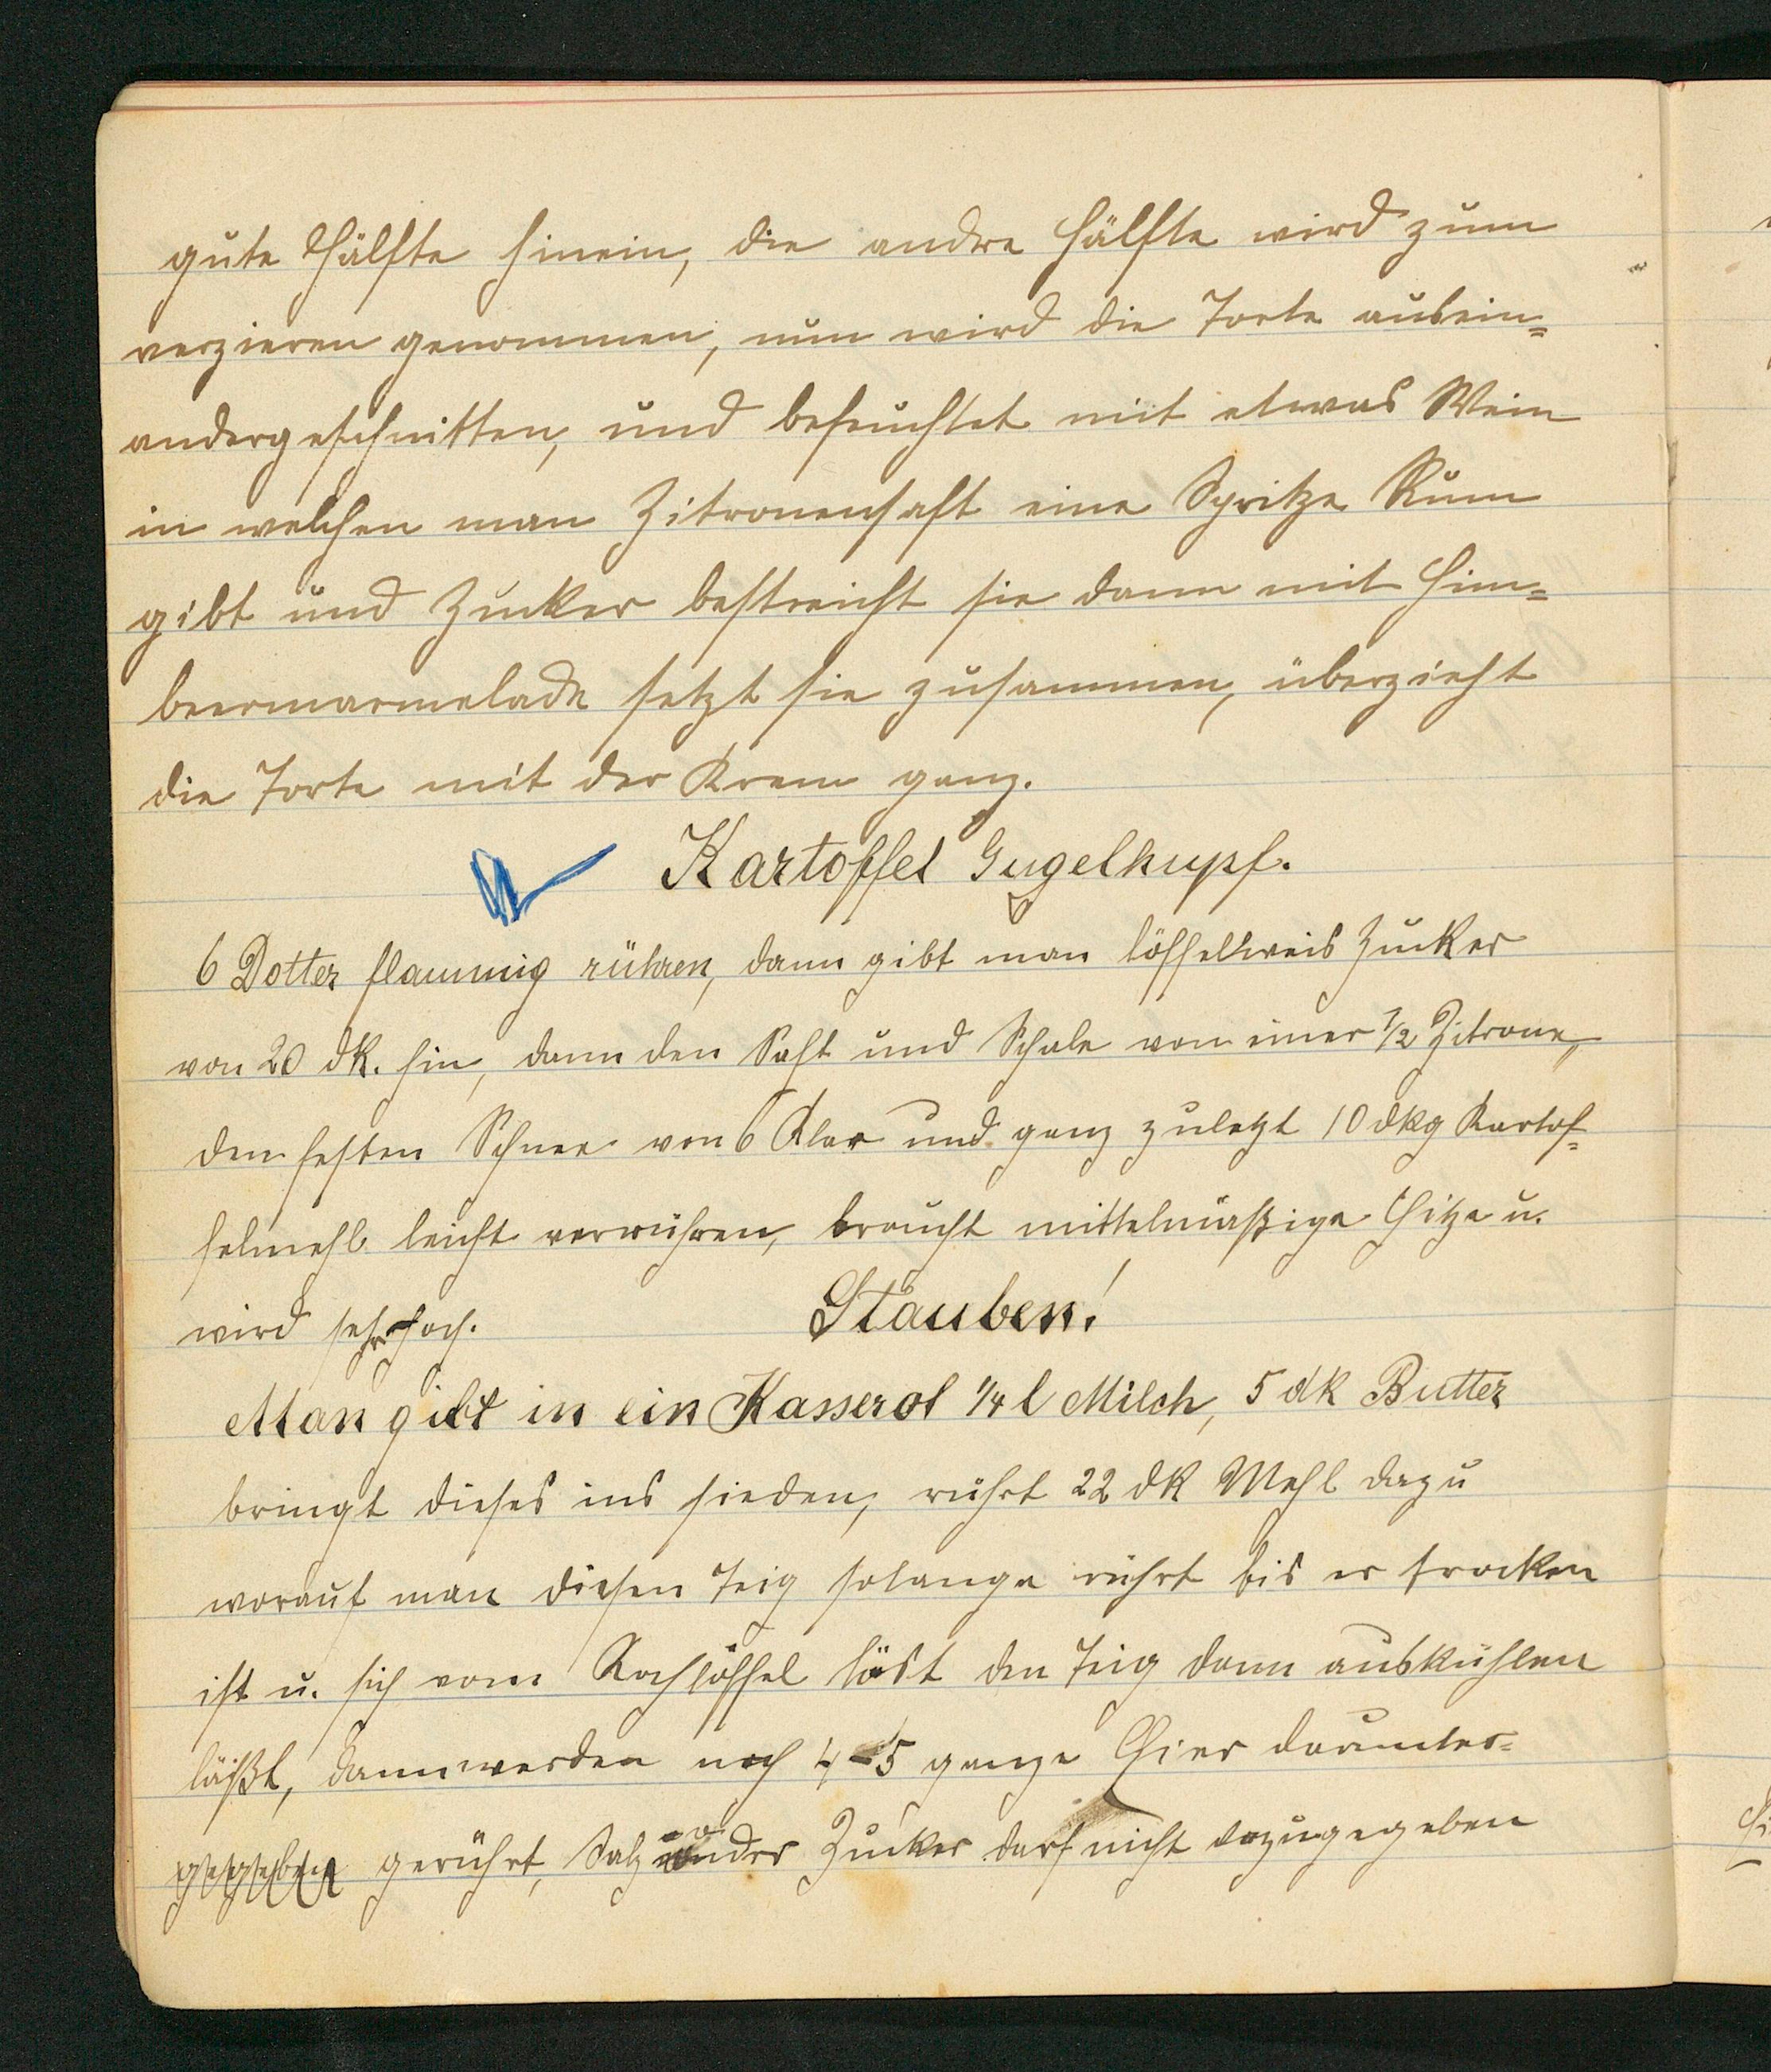 gute Hälfte hinein, die andre Hälfte wird zum
verzieren genommen, nun wird die Torte ausein=
andergeschnitten, und befeuchtet mit etwas Wein
in welchen man Zitronensaft eine Spritze Rum
gibt und Zucker bestreicht sie dann mit Him=
beermarmelade setzt sie zusammen, überzieht
die Torte mit der Krem ganz.
Kartoffel Gugelhupf.
6 Dotter flaumig rühren, dann gibt man löffelweis Zucker
von 20 dk. hin, dann den Saft und Schale von einer 1/2 Zitrone,
den festen Schnee von 6 Klar und ganz zuletzt 10 dkg Kartof=
felmehl leicht verrühren, braucht mittelmäßige Hitze u.
wird sehr hoch.
Stauben!
Man gibt in ein Kasserol 1/4 l Milch, 5 dk Butter
bringt dieses ins sieden, rührt 22 dk Mehl dazu
worauf man diesen Teig solange rührt bis er trocken
ist u. sich vom Kochlöffel löst den Teig dann auskühlen
läßt, dann werden noch 4-5 ganze Eier darunter=
gegeben gerührt, Salz oder Zucker darf nicht dazugegeben